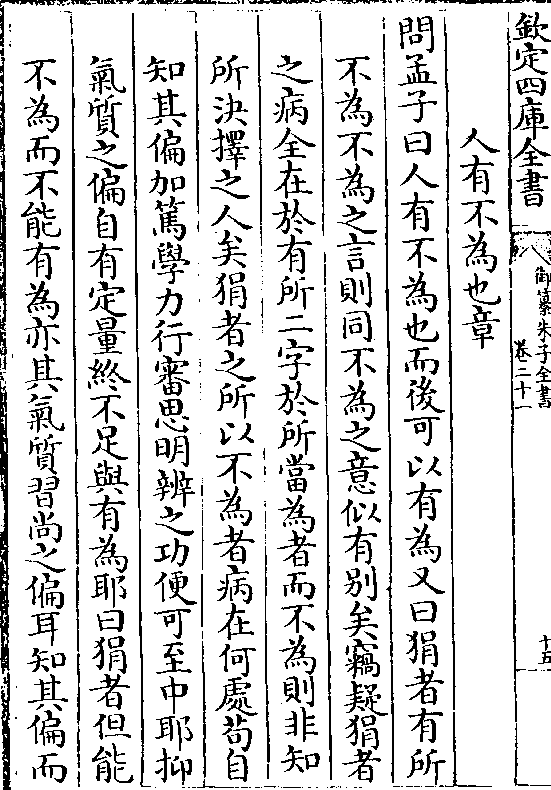 欽定四庫全書
御纂朱子全書
卷二十一
十五
人有不為也章
問孟子曰人有不為也而後可以有為又曰狷者有所
不為不為之言則同不為之意似有别矣竊疑狷者
之病全在於有所二字於所當為者而不為則非知
所決擇之人矣狷者之所以不為者病在何處茍自
知其偏加篤學力行審思明辨之功便可至中耶抑
氣質之偏自有定量終不足與有為耶曰狷者但能
不為而不能有為亦其氣質習尚之偏耳知其偏而